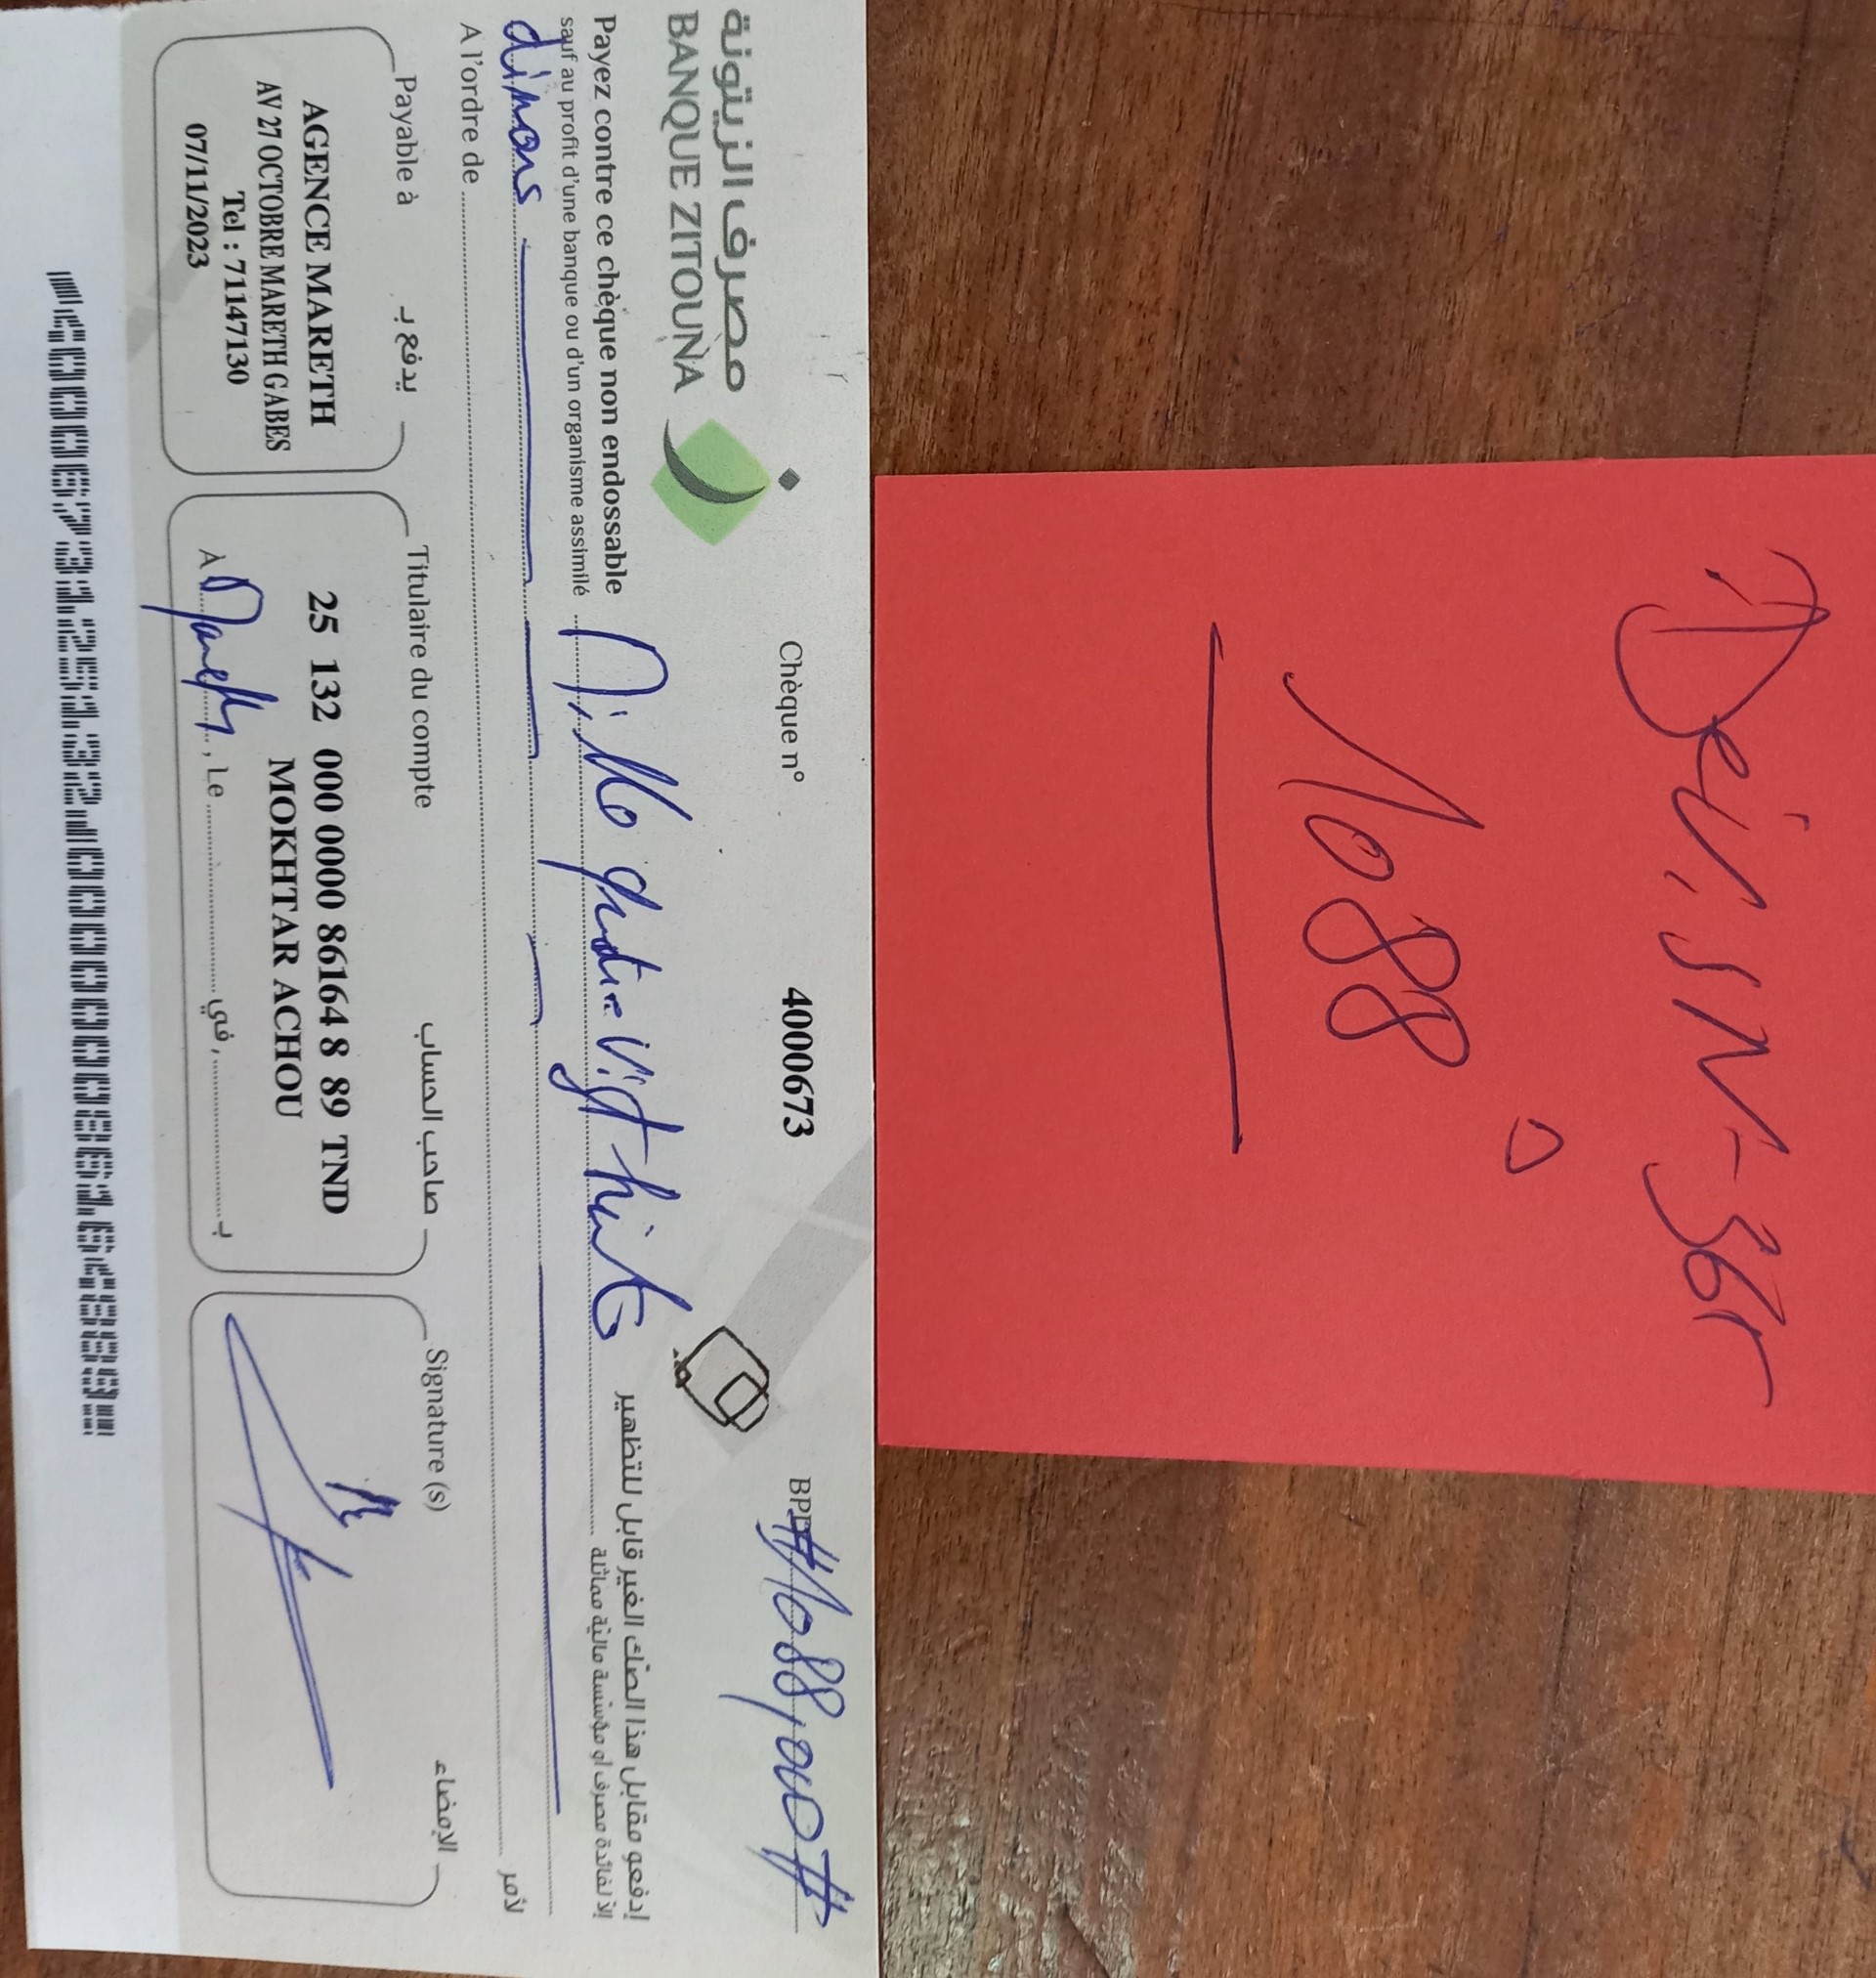 مصرف الزيتونة
BANQUE ZITOUNA
Chèque n° 4000673
BPD #1088,000#
Payez contre ce chèque non endossable
sauf au profit d'une banque ou d'un organisme assimilé
إدفعو مقابل هذا الصك الغير قابل للتظهير
إلا لفائدة مصرف او مؤسسة مالية مماثلة
Mille quatre vigt huit
dinars
A l'ordre de لأمر
Payable à يدفع بـ
AGENCE MARETH
AV 27 OCTOBRE MARETH GABES
Tel : 71147130
07/11/2023
Titulaire du compte صاحب الحساب
25 132 000 0000 86164 8 89 TND
MOKHTAR ACHOU
À Mareth, Le في, بـ
Signature (s) الإمضاء
4000673 25132 000000086164889
1088